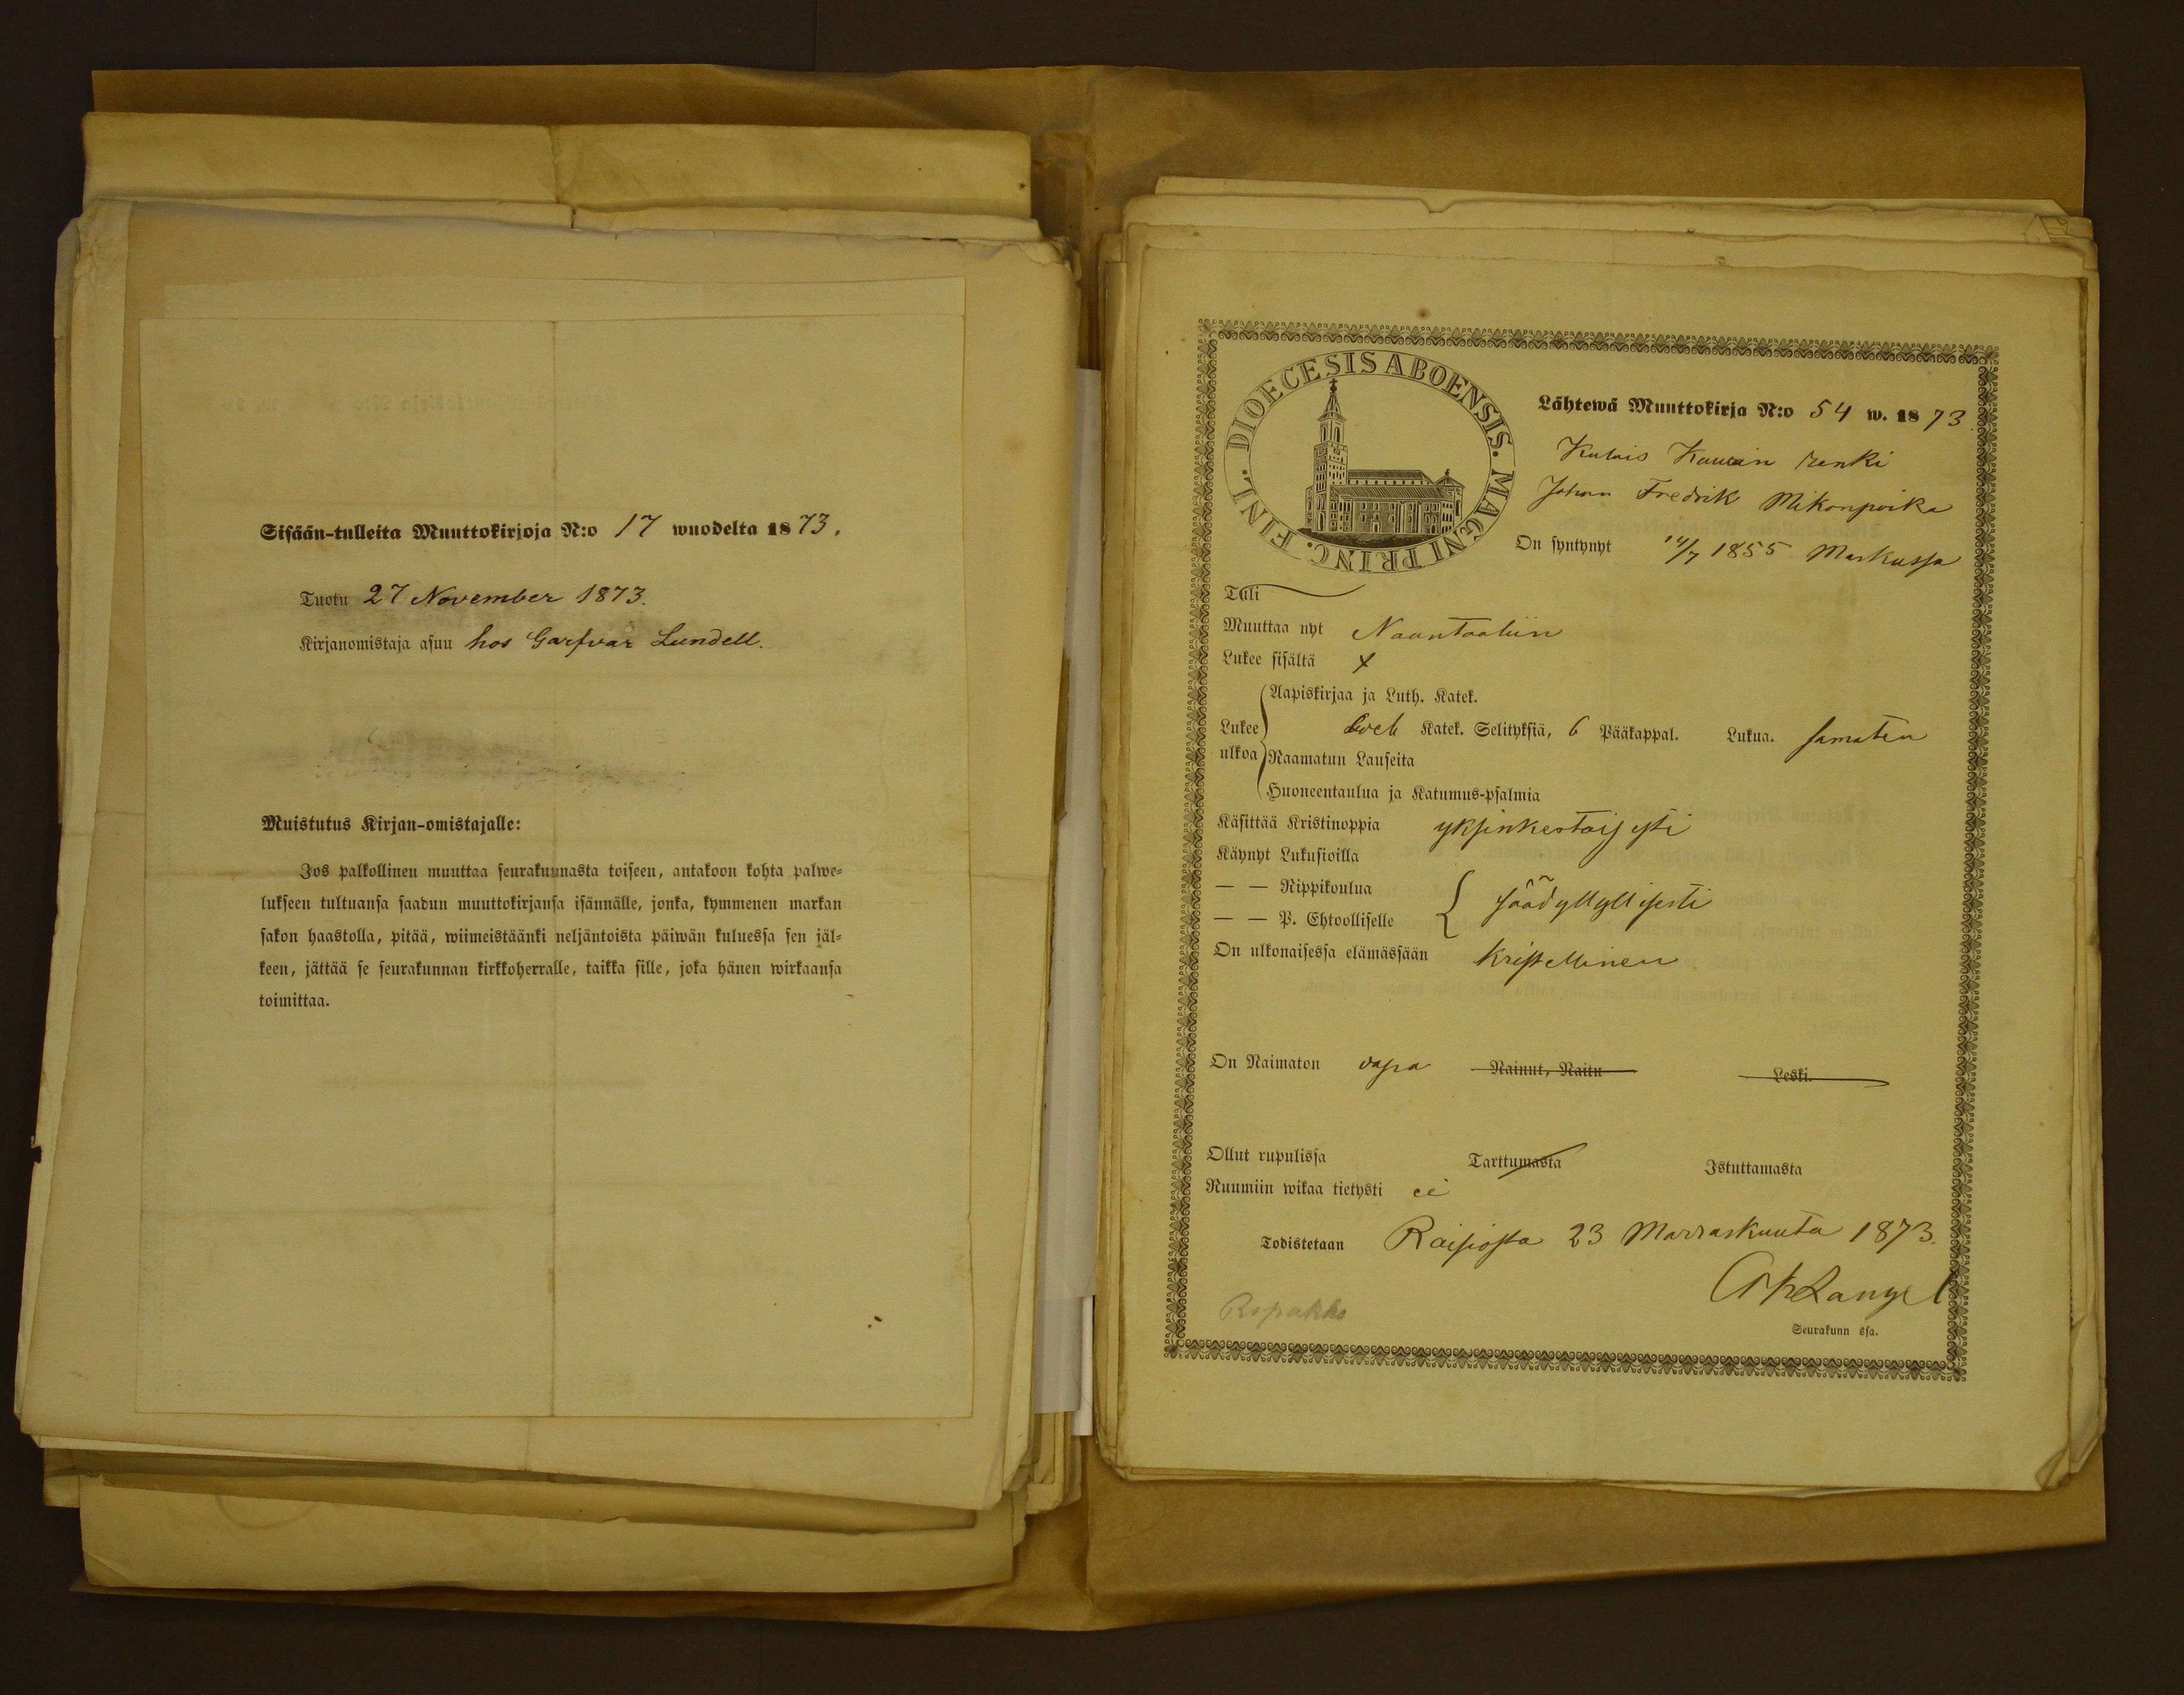 Sisään-tulleita Muuttokirjoja N:o 17 wuodelta 1873.
Tuotu 27 November 1873.
Kirjanomistaja asuu hos Garfvar Lundell.
Muistutus Kirjan-omistajalle:
Jos palkollinen muuttaa seurakunnasta toiseen, antakoon kohta palwe-
lukseen tultuansa saadun muuttokirjansa isännälle, jonka, kymmenen markan
sakon haastolla, pitää, wiimeistäänki neljäntoista päiwän kuluessa sen jäl-
keen, jättää se seurakunnan kirkkoherralle, taikka sille, joka hänen wirkaansa
toimittaa.
DIOECESIS ABOENSIS. MAGNI PRINC. FINL.
Lähtewä Muuttokirja N:o 54 w. 1873.
renki
Johan Fredrik Mikonpoika
On syntynyt 14/7 1855 Maskussa
Tuli
Muuttaa nyt Naantaaliin
Lukee sisältä x
Lukee ulkoa
Aapiskirjaa ja Luth. Katek.
Katek. Selityksiä, 6 Pääkappal. Lukua.
Raamatun Lauseita
Huoneentaulua ja Katumus-psalmia
Käsittää Kristinoppia yksinkertaisesti
Käynyt Lukusioilla
— — Rippikoulua
— — P. Ehtoolliselle säädyllyllisesti
On ulkonaisessa elämässään kristellinen
On Naimaton vapa Nainut, Naitu Leski.
Ollut rupulissa Tarttumasta Istuttamasta
Ruumiin wikaa tietysti ei
Todistetaan Raisiosta 23 Marraskuuta 1873.
Seurakunn ssa.